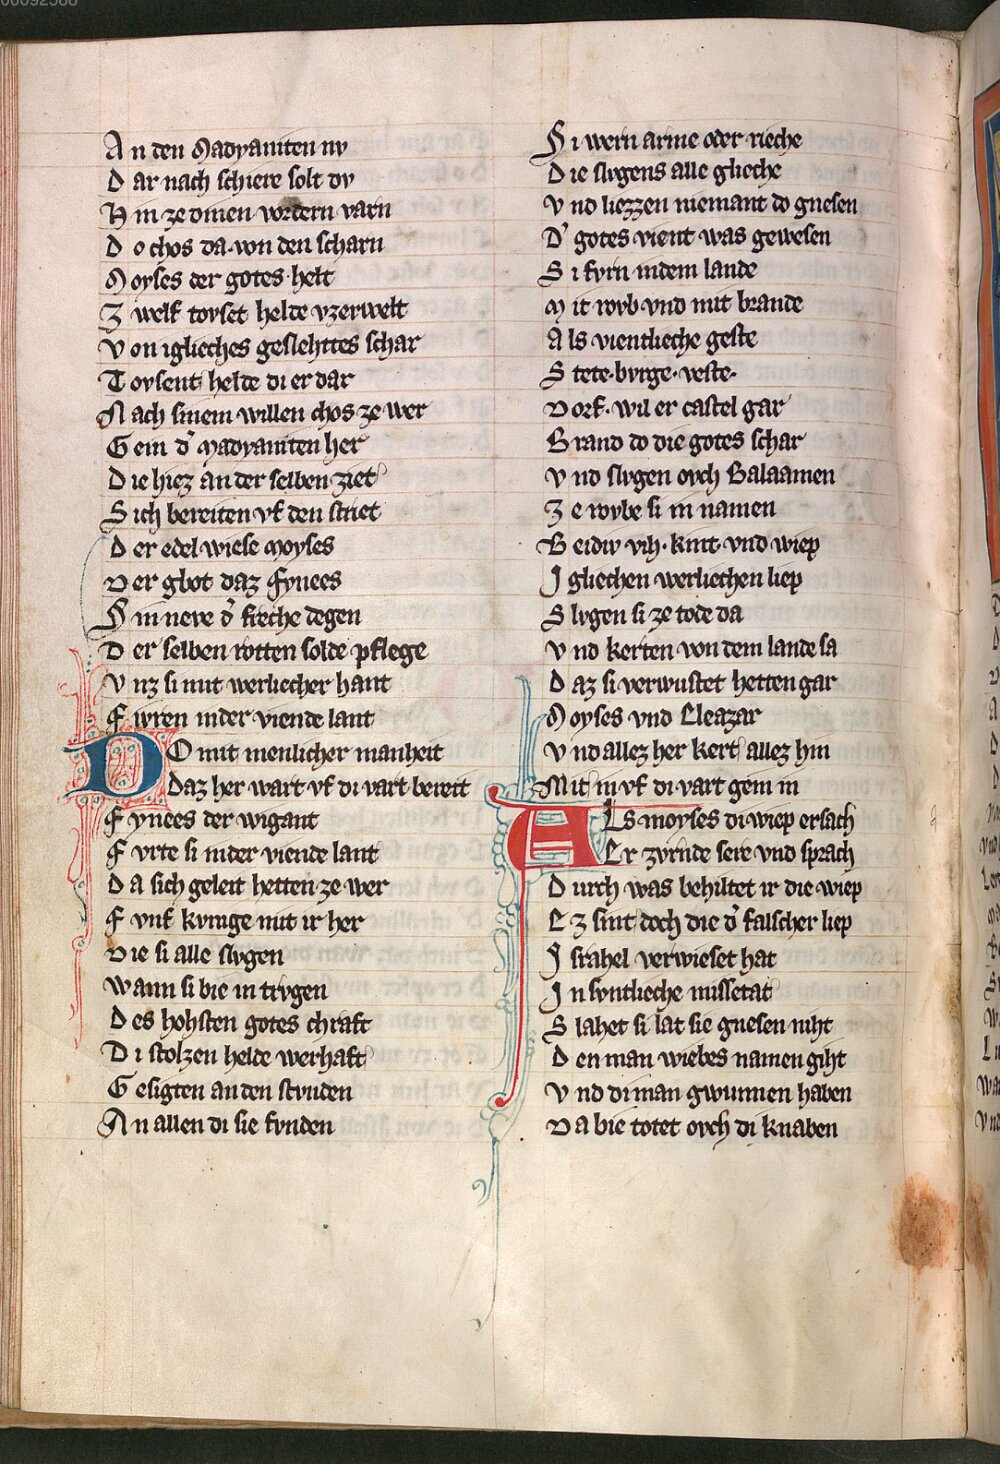 00092588
An den Madyaniten nv
Dar nach schiere solt dv
Hin ze dinen vordern varn
Do chos da von den scharn
Moyses der gotes helt
Zwelf tovset helde vzerwelt
Von iglieches geslehttes schar
Tovsent helde di er dar
Nach sinem willen chos ze wer
Gein d̓ Madyaniten her
Die hiez an der selben ziet
Sich bereiten vf den striet
Der edel wiese Moyses
Ver gbot daz Fynees
Sin neve d̓ freche degen
Der selben rotten solde pflege
Vnz si mit werliecher hant
Fwren inder viende lant
DO mit menlicher manheit
Daz her wart vf di vart bereit
Fynees der wigant
Fvrte si inder viende lant
Da sich geleit hetten ze wer
Fvnf kvnige mit ir her
Die si alle slvgen
Wann si bie in trvgen
Des hohsten gotes chraft
Di stolzen helde werhaft
Gesigten an den stvnden
An allen di sie fvnden
Si wern arme oder rieche
Die slvgens alle glieche
Vnd liezzen niemant do gnesen
D̓ gotes vient was gewesen
Si fvrn indem lande
Mit rovb vnd mit brande
Als vientlieche geste
Stete·bvrge·veste·
Dorf·wil er castel gar
Brand do die gotes schar
Vnd slvgen ovch Balaamen
Ze rovbe si in namen
Beidiv vih·kint vnd wiep
Igliechen werliechen liep
Slvgen si ze tode da
Vnd kerten von dem lande sa
Daz si verwustet hetten gar
Moyses vnd Eleazar
Vnd allez her kert allez hin
Mit in vf di vart gein in
ALs moyses di wiep ersach
Er zvrnde sere vnd sprach
Durch was behiltet ir die wiep
Ez sint doch die d̓ falscher liep
Israhel verwieset hat
In syntlieche missetat
Slahet si lat sie gnesen niht
Den man wiebes namen giht
Vnd di man gwunnen haben
Da bie totet ovch di knaben